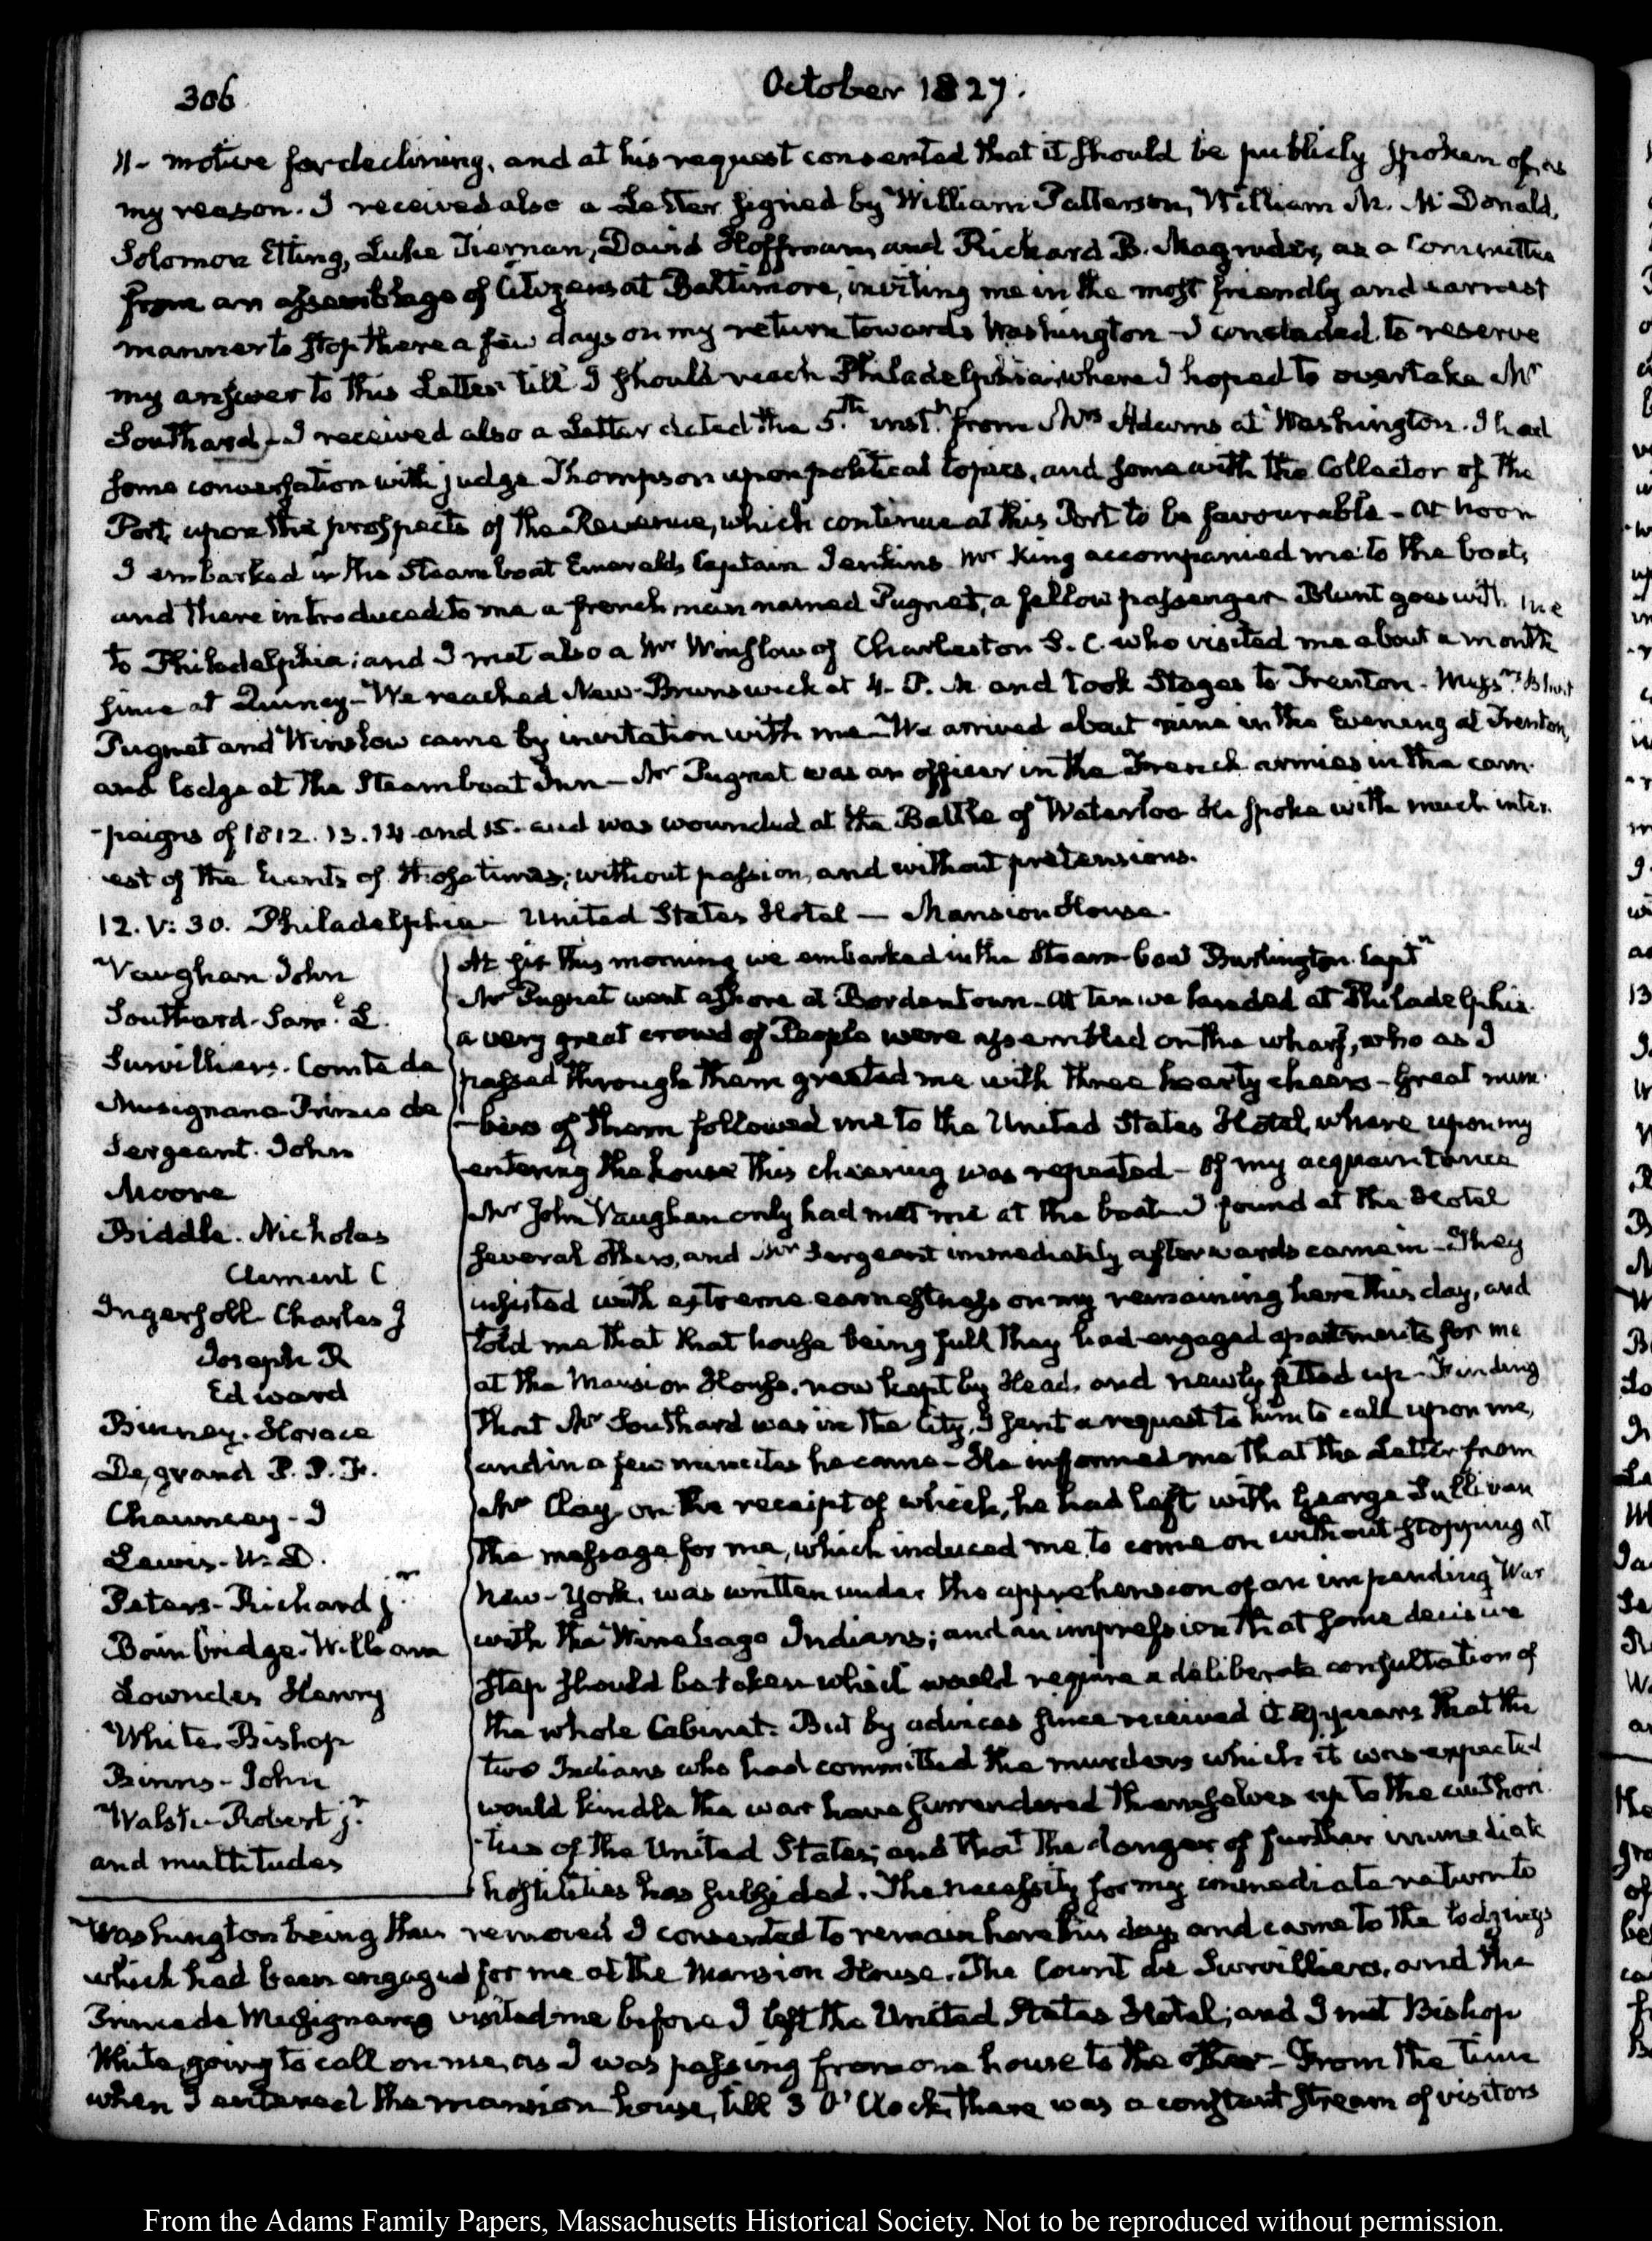 306
October 1827.
11- motive for declining, and at his request consented that it should be publicly spoken of, as
my reason. I received also a Letter signed by William Patterson, William M. McDonald,
Solomon Etting, Luke Tiernan, David Hoffman, and Richard B. Magruder, as a Committee
from an assemblage of Citizens at Baltimore, inviting me in the most friendly and earnest
manner to stop there a few days on my return towards Washington - I concluded to reserve
my answer to this Letter till I should reach Philadelphia where I hoped to overtake Mr
Southard - I received also a Letter dated the 5th instt from Mrs Adams at Washington. I had
some conversation with judge Thompson upon political topics, and some with the Collector of the
Port, upon the prospects of the Revenue, which continue at this Port to be favourable - At Noon
I embarked in the Steam boat Emerald, Captain Jenkins. Mr King accompanied me to the boat,
and there introduced to me a french man named Pugnet, a fellow passenger. Blunt goes with me
to Philadelphia; and I met also a Mr Winslow of Charleston S. C. who visited me about a month
since at Quincy - We reached New-Brunswick at 4. P. M. and took Stages to Trenton - Messrs Blunt
Pugnet and Winslow came by invitation with me - We arrived about nine in the Evening at Trenton,
and lodge at the Steamboat Inn - Mr Pugnet was an officer in the French armies in the cam-
-paigns of 1812. 13. 14 and 15. and was wounded at the Battle of Waterloo He spoke with much inter-
est of the Events of those times; without passion, and without pretensions.
12. V: 30. Philadelphia - United States Hotel - Mansion House.
Vaughan John
Southard - Saml L.
Survilliers. Comte de
Musignano - Prince de
Sergeant. John
Moore
Biddle. Nicholas
Clement C
Ingersoll Charles J
Joseph R
Edward
Binney. Horace
Degrand P. P. F.
Chauncey - I
Lewis - W. D.
Peters - Richard jr
Bainbridge. William
Lowndes Henry
White. Bishop
Binns - John
Walsh - Robert jr
and multitudes
At six this morning we embarked in the Steam-boat Burlington. Captn
Mr Pugnet went ashore at Bordentown - At ten we landed at Philadelphia
a very great crowd of People were assembled on the wharf, who as I
passed through them greeted me with three hearty cheers - Great num-
-bers of them followed me to the United States Hotel, where upon my
entering the house this cheering was repeated - Of my acquaintance
Mr John Vaughan only had met me at the boat - I found at the Hotel
several others, and Mr Sergeant immediately afterwards came in - They
insisted with extreme earnestness on my remaining here this day, and
told me that that house being full they had engaged apartments for me
at the Mansion House, now kept by Head, and newly fitted up - Finding
that Mr Southard was in the City, I sent a request to him to call upon me,
and in a few minutes he came - He informed me that the Letter from
Mr Clay, on the receipt of which, he had left with George Sullivan
the message for me, which induced me to come on without stopping at
New-York, was written under the apprehension of an impending War
with the Winebago Indians; and an impression that some decisive
step should be taken which would require a deliberate consultation of
the whole Cabinet. But by advices since received it appears that the
two Indians who had committed the murders which it was expected
would kindle the war have surrendered themselves up to the authori-
-ties of the United States; and that the danger of further immediate
hostilities has subsided. The necessity for my immediate return to
Washington being thus removed I consented to remain here this day, and came to the lodgings
which had been engaged for me at the Mansion House. The Count de Survilliers, and the
Prince de Musignano visited me before I left the United States Hotel; and I met Bishop
White, going to call on me, as I was passing from one house to the other - From the time
when I entered the mansion house, till 3 O'Clock, there was a constant stream of visitors
From the Adams Family Papers, Massachusetts Historical Society. Not to be reproduced without permission.